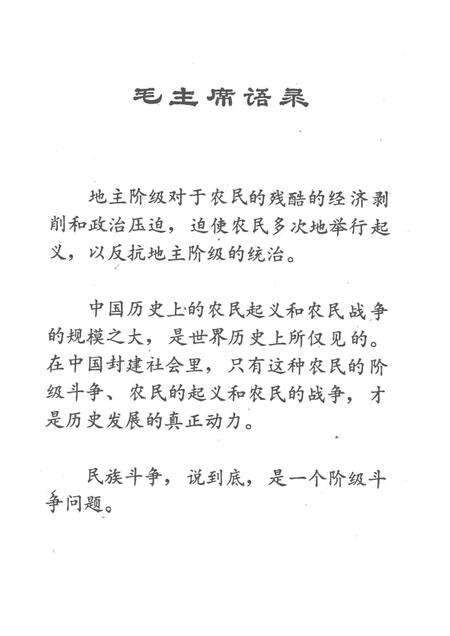 毛主席语录
地主阶级对于农民的残酷的经济剥
削和政治压迫，迫使农民多次地举行起
义，以反抗地主阶级的统治。
中国历史上的农民起义和农民战争
的规模之大，是世界历史上所仅见的。
在中国封建社会里，只有这种农民的阶
级斗争、农民的起义和农民的战争，才
是历史发展的真正动力。
民族斗争，说到底，是一个阶级斗
争问题。